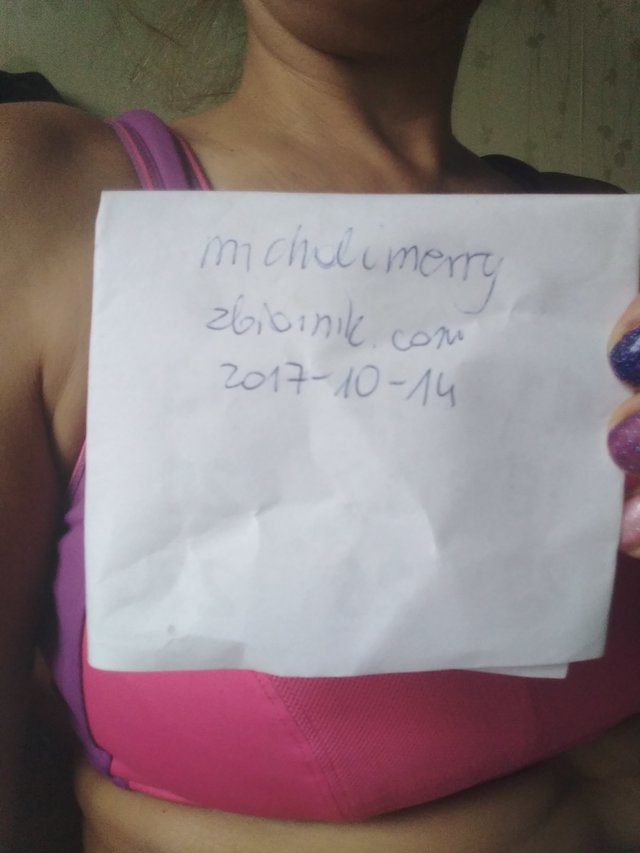 micholimerry
zbiornik.com
2017-10-14